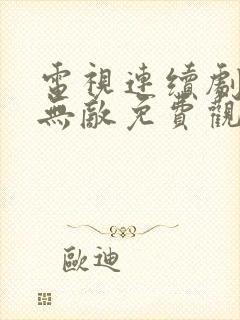 電視連續劇
無敵免費觀
歐迪